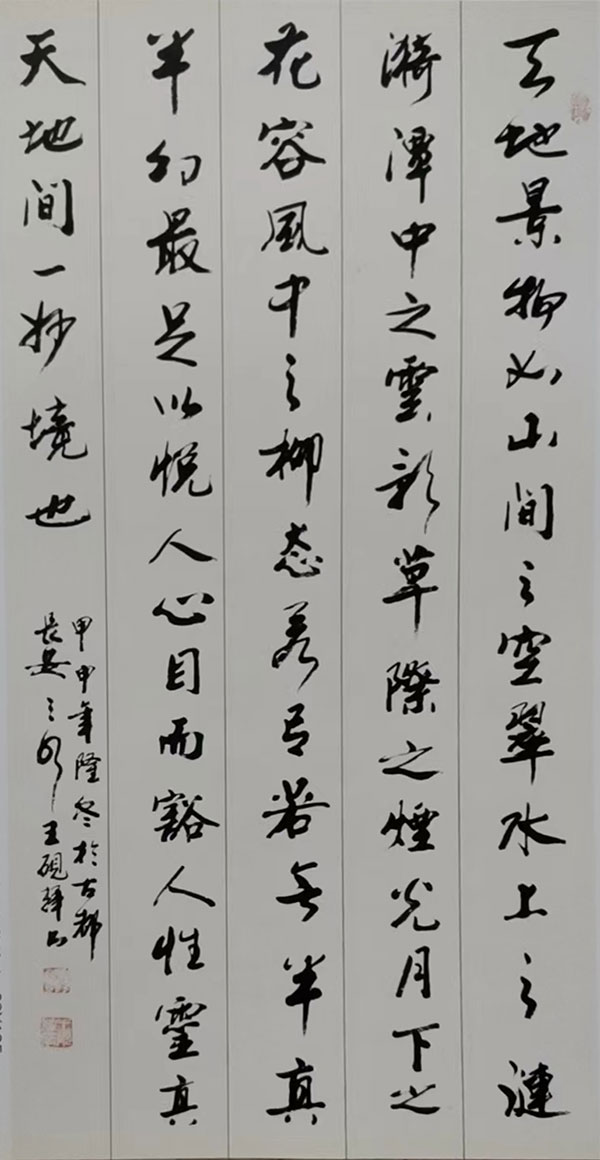 天地景物如山间之空翠水上之漣
漪潭中之雲影草際之煙光月下之
花容風中之柳态若有若无半真
半幻最足以悦人心目而豁人性靈真
天地间一妙境也
甲申年隆冬於古都
長安之 王硯 书